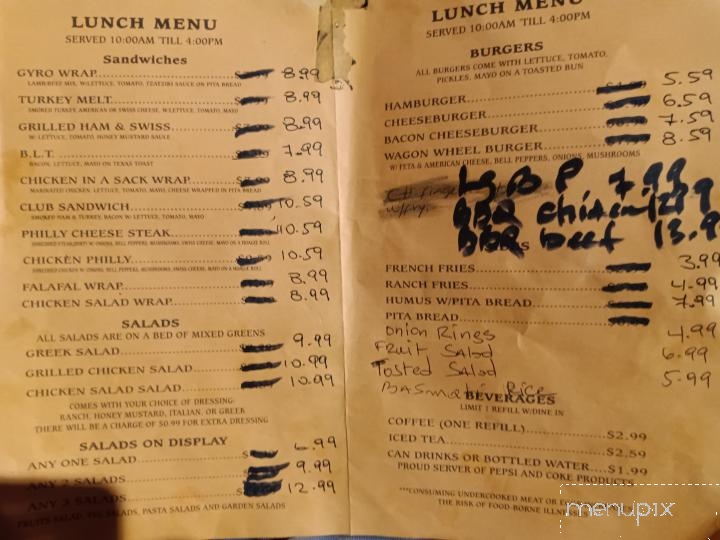 LUNCH MENU
SERVED 10:00AM 'TILL 4:00PM
Sandwiches
GYRO WRAP 8.99
LAMB/BEEF MIX, W/LETTUCE, TOMATO, TZATZIKI SAUCE ON PITA BREAD
TURKEY MELT 8.99
SMOKED TURKEY, AMERICAN OR SWISS CHEESE, W/LETTUCE, TOMATO, MAYO
GRILLED HAM & SWISS 8.99
W/ LETTUCE, TOMATO, HONEY MUSTARD SAUCE
B.L.T. 7.99
BACON, LETTUCE, MAYO ON TEXAS TOAST
CHICKEN IN A SACK WRAP 8.99
MARINATED CHICKEN, LETTUCE, TOMATO, MAYO, CHEESE WRAPPED IN PITA BREAD
CLUB SANDWICH 10.59
SMOKED HAM & TURKEY, BACON W/ LETTUCE, TOMATO, MAYO
PHILLY CHEESE STEAK 10.59
SHREDDED STEAK W/ ONIONS, BELL PEPPERS, MUSHROOMS, SWISS CHEESE, MAYO ON A HOAGIE ROLL
CHICKEN PHILLY 10.59
SHREDDED CHICKEN W/ ONIONS, BELL PEPPERS, MUSHROOMS, SWISS CHEESE, MAYO ON A HOAGIE ROLL
FALAFAL WRAP 8.99
CHICKEN SALAD WRAP 8.99
SALADS
ALL SALADS ARE ON A BED OF MIXED GREENS
GREEK SALAD 9.99
GRILLED CHICKEN SALAD 10.99
CHICKEN SALAD SALAD 10.99
COMES WITH YOUR CHOICE OF DRESSING:
RANCH, HONEY MUSTARD, ITALIAN, OR GREEK
THERE WILL BE A CHARGE OF $0.99 FOR EXTRA DRESSING
SALADS ON DISPLAY
ANY ONE SALAD 6.99
ANY 2 SALADS 9.99
ANY 3 SALADS 12.99
FRUITS SALAD, VEG SALADS, PASTA SALADS AND GARDEN SALADS
LUNCH MENU
SERVED 10:00AM 'TILL 4:00PM
BURGERS
ALL BURGERS COME WITH LETTUCE, TOMATO,
PICKLES, MAYO ON A TOASTED BUN
HAMBURGER 5.59
CHEESEBURGER 6.59
BACON CHEESEBURGER 7.59
WAGON WHEEL BURGER 8.59
W/ PITA & AMERICAN CHEESE, BELL PEPPERS, ONIONS, MUSHROOMS
7.99
BBQ chicken
BBQ beef 13.9
FRENCH FRIES 3.99
RANCH FRIES 4.99
HUMUS W/PITA BREAD 7.99
PITA BREAD
Onion Rings 4.99
Fruit Salad 6.99
Tosted Salad 5.99
Basmati Rice
BEVERAGES
LIMIT 1 REFILL W/DINE IN
COFFEE (ONE REFILL) $2.99
ICED TEA $2.59
CAN DRINKS OR BOTTLED WATER $1.99
PROUD SERVER OF PEPSI AND COKE PRODUCTS
***CONSUMING UNDERCOOKED MEAT OR
THE RISK OF FOOD-BORNE
menupix